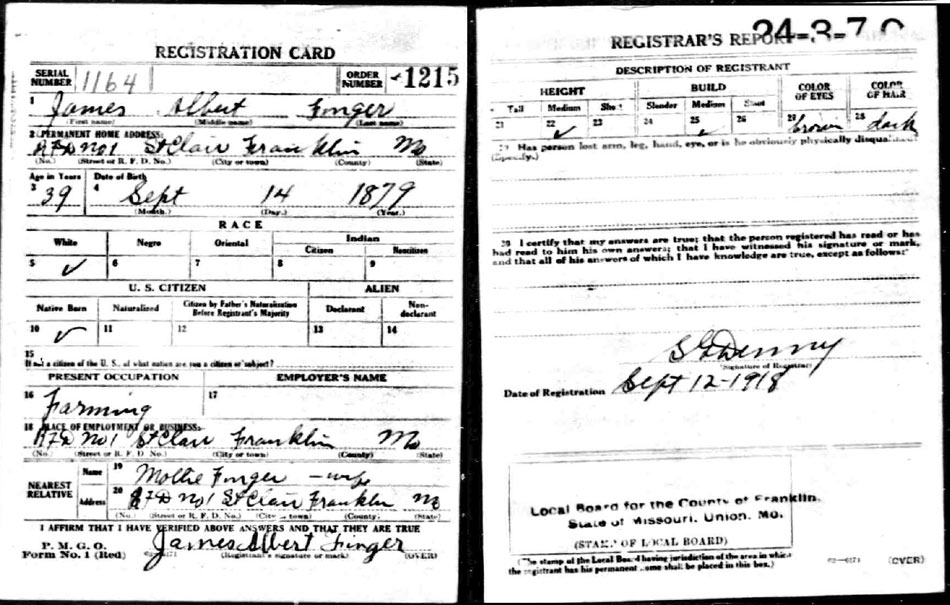 REGISTRATION CARD
SERIAL NUMBER 1164 ORDER NUMBER 1215
1 James Albert Finger
(First name) (Middle name) (Last name)
2 PERMANENT HOME ADDRESS:
RFD No 1 St Clair Franklin Mo
(No.) (Street or R. F. D. No.) (City or town) (County) (State)
Age in Years Date of Birth
3 39 4 Sept 14 1879
(Month.) (Day.) (Year.)
RACE
White Negro Oriental Indian
Citizen Noncitizen
5 ✓ 6 7 8 9
U. S. CITIZEN ALIEN
Native Born Naturalized Citizen by Father's Naturalization Before Registrant's Majority Declarant Non-declarant
10 ✓ 11 12 13 14
15
If not a citizen of the U. S., of what nation are you a citizen or subject?
PRESENT OCCUPATION EMPLOYER'S NAME
16 Farming 17
18 PLACE OF EMPLOYMENT OR BUSINESS:
RFD No 1 St Clair Franklin Mo
(No.) (Street or R. F. D. No.) (City or town) (County) (State)
NEAREST RELATIVE
Name 19 Mollie Finger – wife
Address 20 RFD No 1 St Clair Franklin Mo
(No.) (Street or R. F. D. No.) (City or town) (County) (State)
I AFFIRM THAT I HAVE VERIFIED ABOVE ANSWERS AND THAT THEY ARE TRUE
P. M. G. O.
Form No. 1 (Red) James Albert Finger
(Registrant's signature or mark) (OVER)
REGISTRAR'S REPORT
DESCRIPTION OF REGISTRANT
HEIGHT BUILD COLOR OF EYES COLOR OF HAIR
Tall Medium Short Slender Medium Stout
21 22 ✓ 23 24 25 ✓ brown 28 dark
29 Has person lost arm, leg, hand, eye, or is he obviously physically disqualified?
(Specify.)
30 I certify that my answers are true; that the person registered has read or has
had read to him his own answers; that I have witnessed his signature or mark,
and that all of his answers of which I have knowledge are true, except as follows:
Denny
(Signature of Registrar)
Date of Registration Sept 12-1918
Local Board for the County of Franklin,
State of Missouri, Union, Mo.
(STAMP OF LOCAL BOARD)
(The stamp of the Local Board having jurisdiction of the area in which
the registrant has his permanent home shall be placed in this box.)
(OVER)